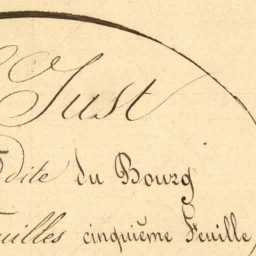 Just
dite du Bourg
uilles cinquième Feuille